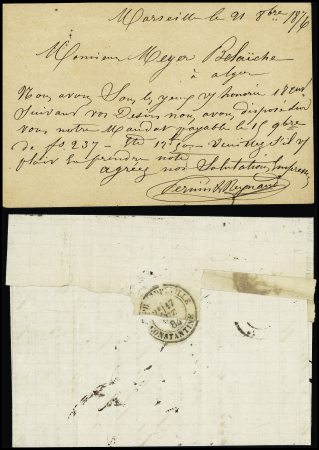 Marseille le 21 8bre 1876
Monsieur Meyer Belaïche
à alger
Nous avons Sous les yeux v/ honorée 18 cour
Suivant vos Desirs nous avons disposé sur
vous notre Mandat payable le 15 9bre
de fs 237 – Veuillez S'il v/
plait En prendre note
agréez nos Salutations Empressées
& Reynaud
PHILIPPEVILLE
CONSTANTINE